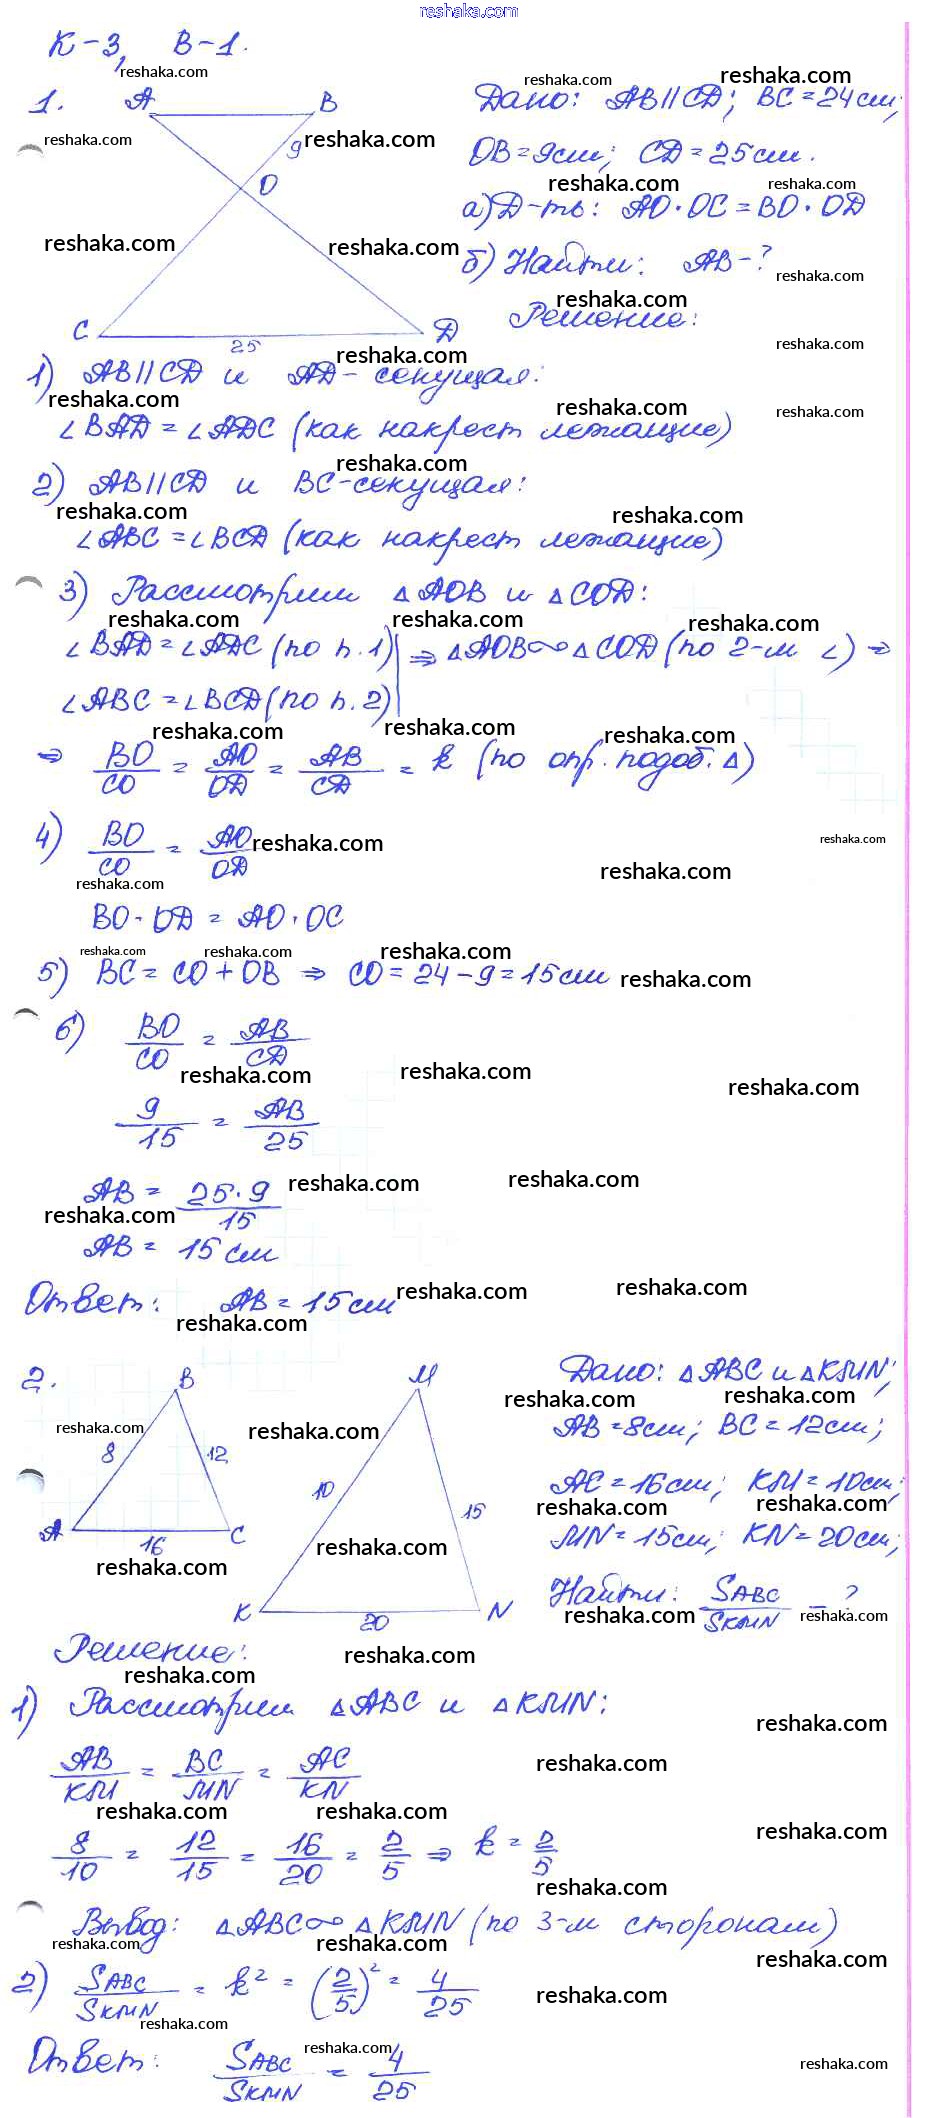 reshaka.com
К-3, В-1.
1. A B 9 O C 25 D
Дано: AB||CD; BC=24см;
OB=9см; CD=25см.
а) Д-ть: AO·OC=BO·OD
б) Найти: AB-?
Решение:
1) AB||CD и AD-секущая:
∠BAD=∠ADC (как накрест лежащие)
2) AB||CD и BC-секущая:
∠ABC=∠BCD (как накрест лежащие)
3) Рассмотрим △AOB и △COD:
∠BAD=∠ADC (по п.1) | ⇒ △AOB∾△COD (по 2-м ∠) ⇒
∠ABC=∠BCD (по п.2)
⇒ BO/CO = AO/OD = AB/CD = k (по опр. подоб. △)
4) BO/CO = AO/OD
BO·OD = AO·OC
5) BC = CO+OB ⇒ CO = 24-9=15см
6) BO/CO = AB/CD
9/15 = AB/25
AB = 25·9/15
AB = 15см
Ответ: AB=15см
2. B 8 12 A 16 C M 10 15 K 20 N
Дано: △ABC и △KMN;
AB=8см; BC=12см;
AC=16см; KM=10см;
MN=15см; KN=20см;
Найти: SABC/SKMN - ?
Решение:
1) Рассмотрим △ABC и △KMN:
AB/KM = BC/MN = AC/KN
8/10 = 12/15 = 16/20 = 2/5 ⇒ k = 2/5
Вывод: △ABC∾△KMN (по 3-м сторонам)
2) SABC/SKMN = k² = (2/5)² = 4/25
Ответ: SABC/SKMN = 4/25